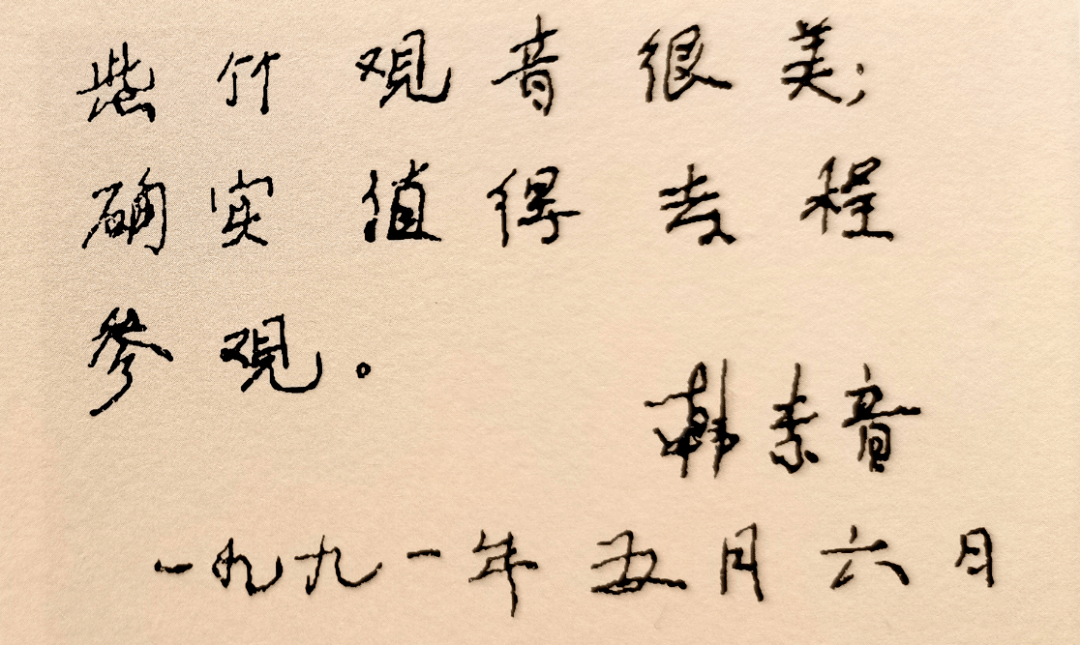 紫竹观音很美;
确实值得专程
参观。
韩素音
一九九一年五月六日